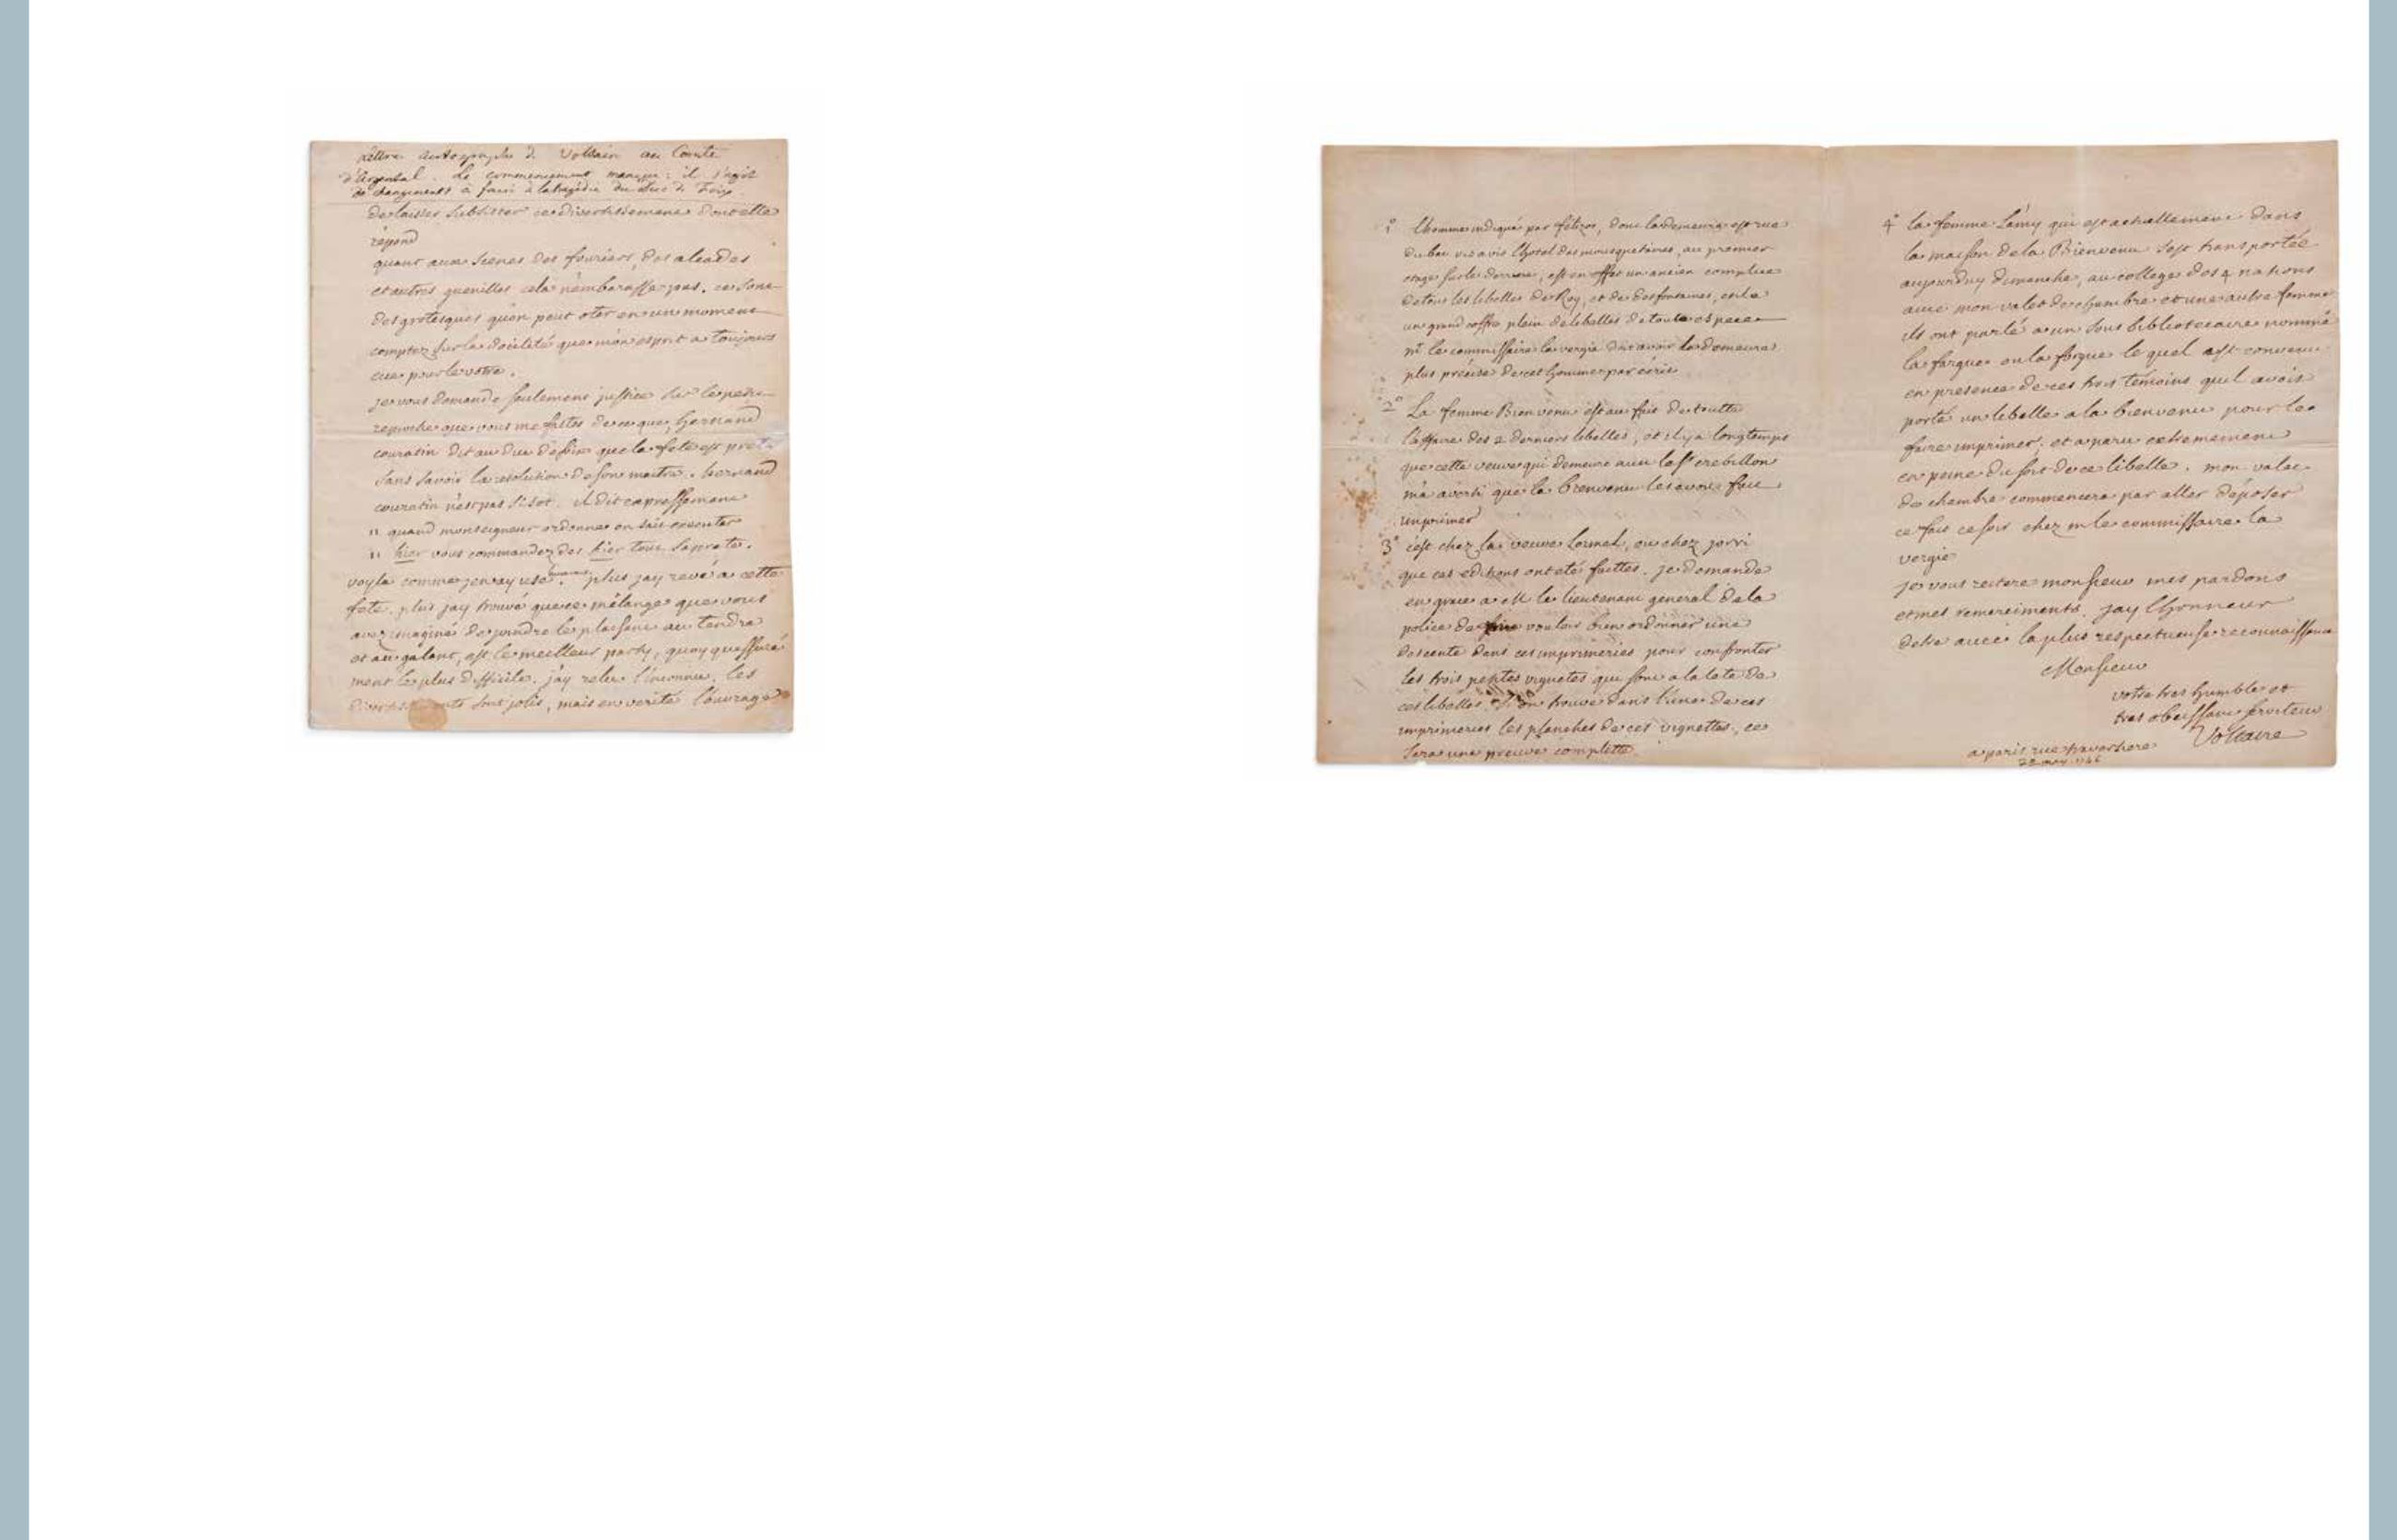 Lettre autographe de Voltaire au Comte
d'Argental. Le commencement manque: il s'agit
de changements à faire à la tragédie du Duc de Foix
de laisser subsister ce divertissement dont elle
répond
quant aux scenes des fouriers, des alcades
et autres guenilles cela n'embarasse pas. ce sont
des grotesques quon peut oter en un moment
comptez sur la docilité que mon esprit a toujours
eue pour le votre.
je vous demande seulement justice sur le petit
reproche que vous me faittes de ce que hernand
couratin dit au duc de foix que la fete est prete
sans savoir la resolution de son maitre. hernand
couratin n'est pas si sot. il dit expressement
" quand monseigneur ordonne on sait executer
" hier vous commandez des hier tout sapreta.
voyla comme jen ay usé. plus jay revé a cette
fete, plus jay trouvé que ce mélange que vous
avez imaginé de joindre le plaisant au tendre
et au galant, est le meilleur party, quoy quassuré
ment le plus difficile. j'ay relu l'inconnu, les
sont jolis, mais en verité l'ouvrage
1° lhomme indiqué par fétizon, dont la demeure est rue
du bac vis a vis lhotel des mousquetaires, au premier
etage sur le derriere, est en effet un ancien complice
de tous les libelles de Roy, et de desfontaines, et il a
un grand coffre plein de libelles de toute espece
mr le commissaire la vergie doit avoir la demeure
plus précise de cet homme par écrit
2° La femme Bienvenu est au fait de toutte
l'affaire des 2 derniers libelles, et il y a longtemps
que cette veuve qui demeure avec la sr crebillon
m'a averti que la bienvenu les avoit fait
imprimer
3° c'est chez la veuve Lormel, ou chez jorri
que ces editions ont eté faittes. je demande
en grace a M le lieutenant general de la
police de vouloir bien ordonner une
descente dans ces imprimeries pour confronter
les trois petites vignetes qui sont a la tete de
ces libelles. Si on trouve dans l'une de ces
imprimeries les planches de ces vignettes, ce
sera une preuve complette
4° la femme Lamy qui est actuellement dans
la maison de la Bienvenu sest transportée
aujourduy dimanche, au college des 4 nations
avec mon valet de chambre et une autre femme
ils ont parlé a un sous bibliotecaire nommé
la fargue ou la forgue le quel est convenu
en presence de ces trois temoins quil avoit
porté un libelle a la bienvenu pour le
faire imprimer; et a paru extremement
en peine du sort de ce libelle. mon valet
de chambre commencera par aller déposer
ce fait ce soir chez m le commissaire la
vergie
je vous reitere monsieur mes pardons
et mes remerciments, jay lhonneur
detre avec la plus respectueuse reconnaissance
Monsieur
votre tres humble et
tres obeissant serviteur
Voltaire
a paris rue traversiere
22 may 1746